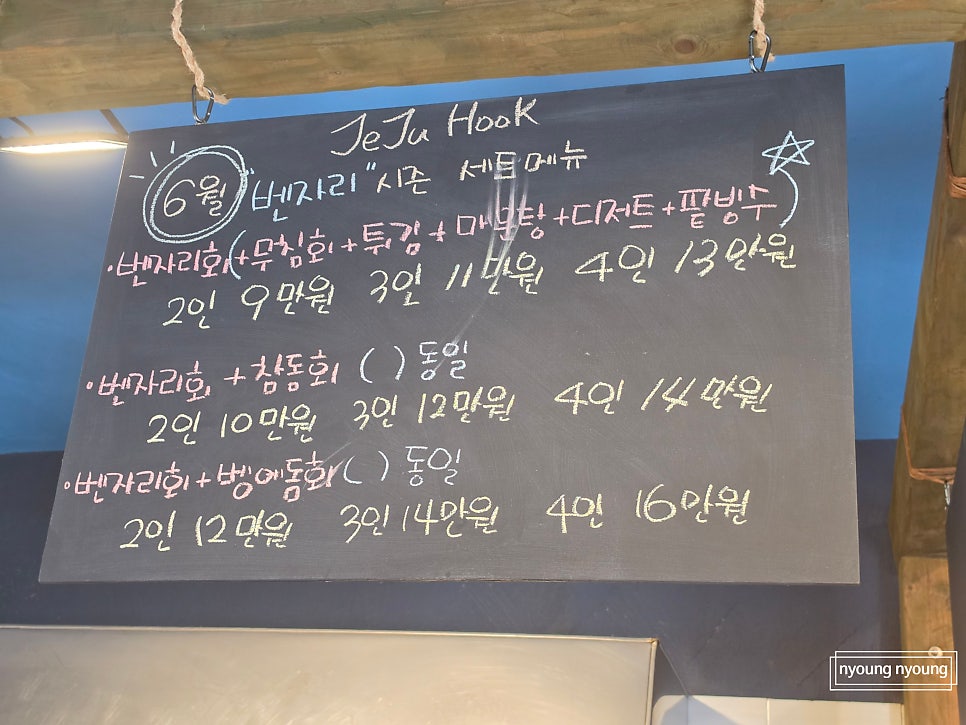 JeJu Hook
6월 "벤자리" 시즌 세트메뉴 ☆
·벤자리회(+무침회+튀김+매운탕+디저트+팥빙수)
2인 9만원 3인 11만원 4인 13만원
·벤자리회 + 참돔회 ( ) 동일
2인 10만원 3인 12만원 4인 14만원
·벤자리회+벵에돔회 ( ) 동일
2인 12만원 3인 14만원 4인 16만원
nyoung nyoung